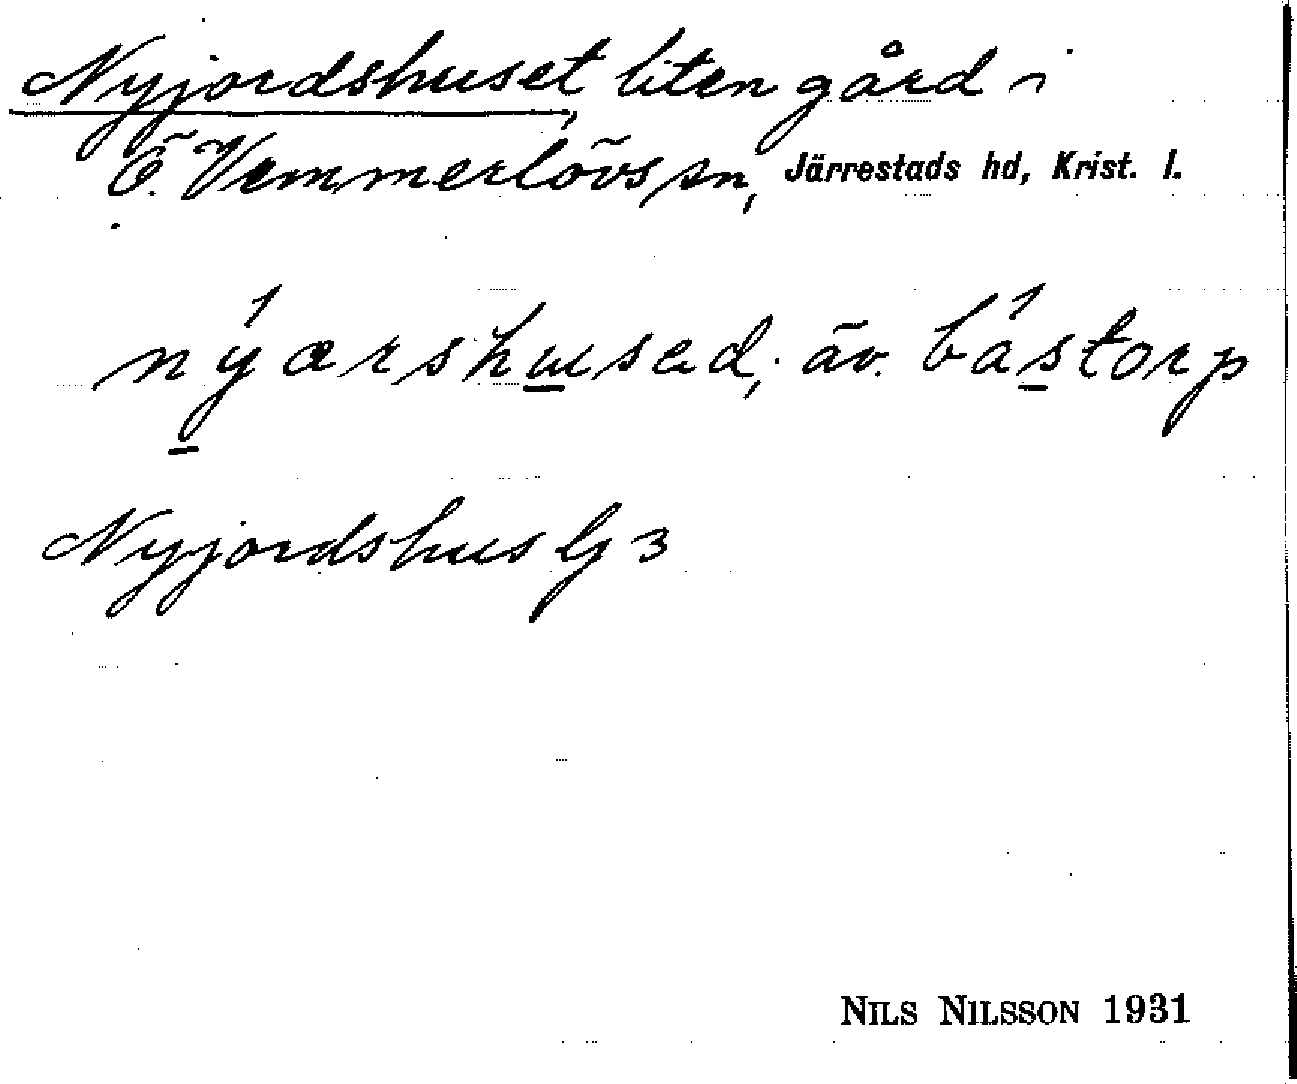 Nyjordshuset, liten gård i
Ö. Vemmerlövs sn, Järrestads hd, Krist. l.
nýarshused; äv. bástorp
Nyjordshus G 3
NILS NILSSON 1931